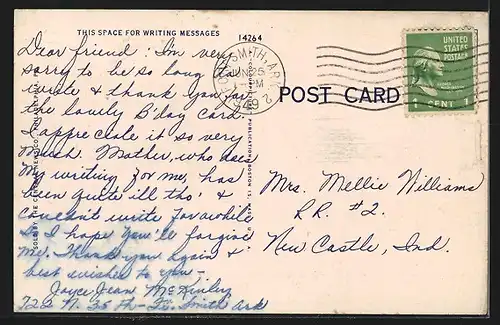 THIS SPACE FOR WRITING MESSAGES
14264
Dear friend: I'm very
sorry to be so long to
write & thank you for
the lovely B'day card.
I appreciate it so very
much. Mother, who does
my writing for me, has
been quite ill tho' &
couldn't write for awhile
So I hope you'll forgive
me. Thank you again &
best wishes to you—
Joyce Jean McKinley
722 N. 35 th- Ft. Smith Ark
SMITH, ARK.
JUN 25
PM
1949
UNITED
STATES
POSTAGE
1 CENT 1
POST CARD
Mrs. Mellie Williams
R.R. #2.
New Castle, Ind.
SOLD BY THE CENTRAL NEWS CO.
PUBLICATION BOSTON 15, MASS. U.